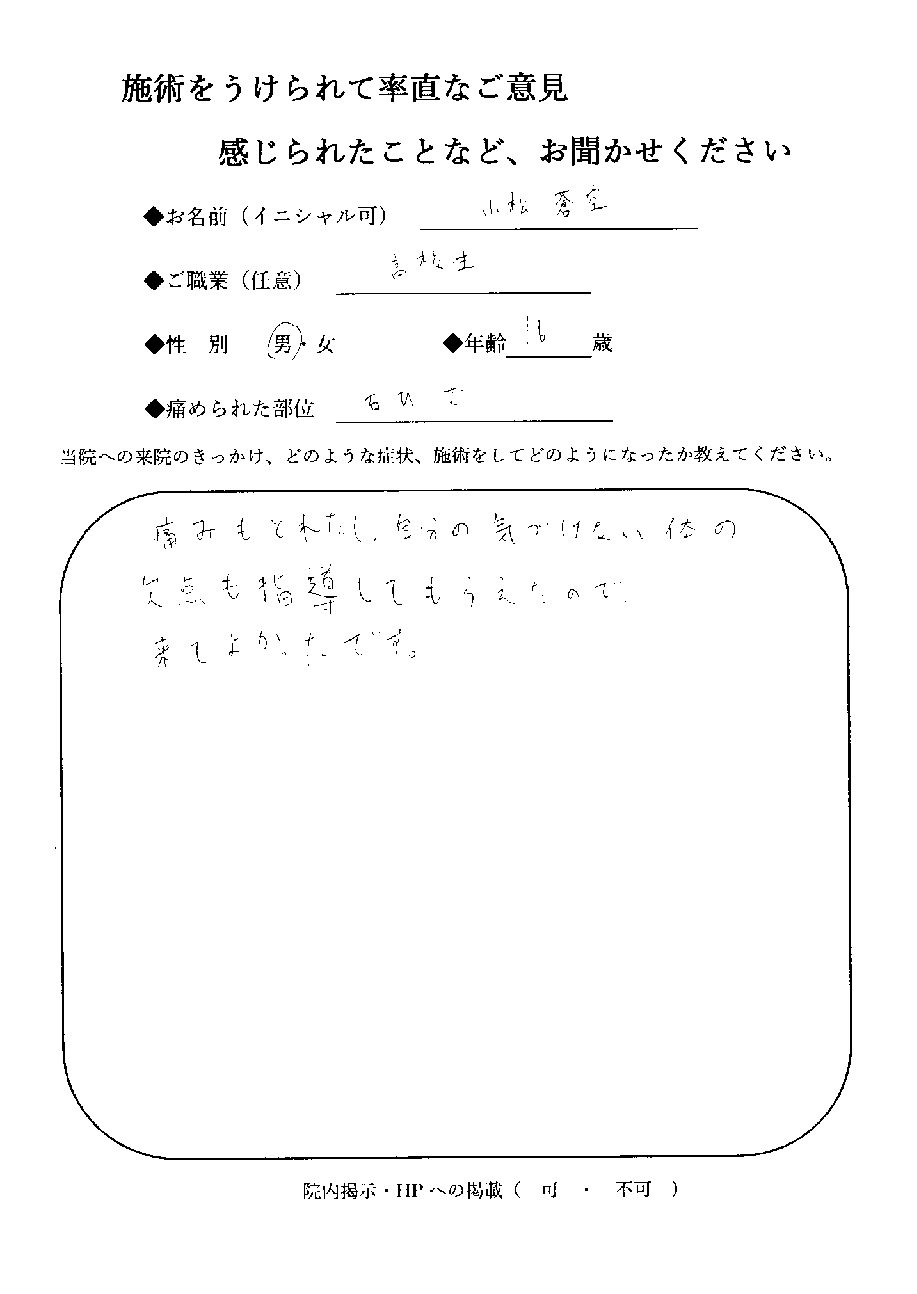 施術をうけられて率直なご意見
感じられたことなど、お聞かせください
◆お名前（イニシャル可） 小松 蒼空
◆ご職業（任意） 高校生
◆性 別 男・女 ◆年齢 16 歳
◆痛められた部位 右ひざ
当院への来院のきっかけ、どのような症状、施術をしてどのようになったか教えてください。
痛みもとれたし、自分の気づけない体の
欠点も指導してもらえたので、
来てよかったです。
院内掲示・HPへの掲載（ 可 ・ 不可 ）